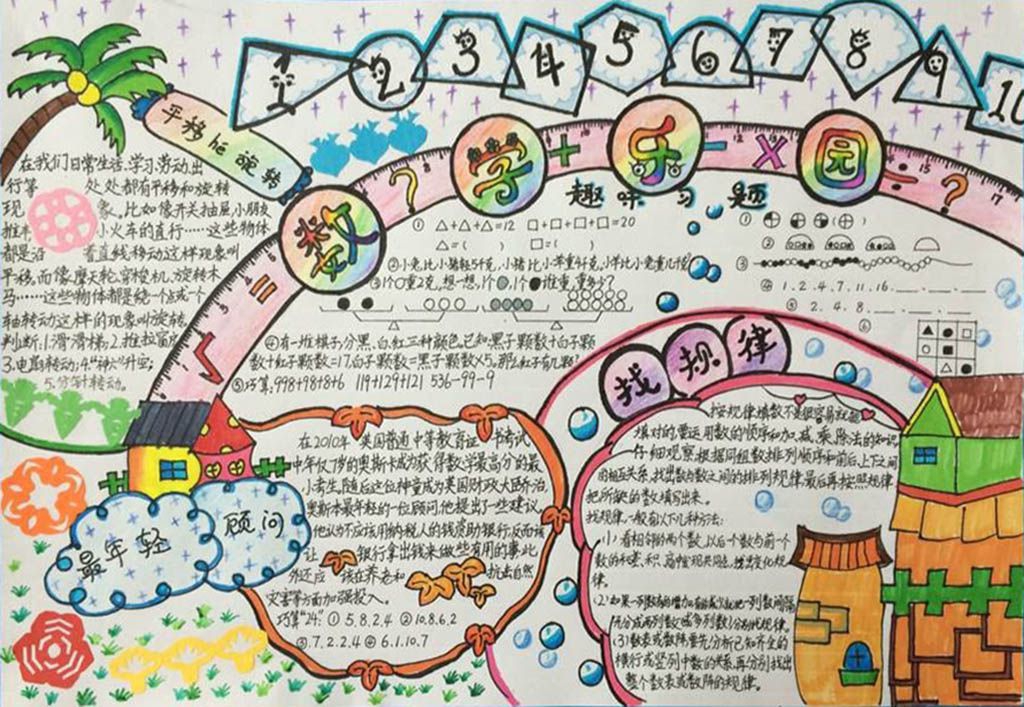 1 2 3 4 5 6 7 8 9 10
数 学 乐 园
= ? + - × ÷ - ?
平移和旋转
在我们日常生活、学习、劳动出
行等 处处都有平移和旋转
现 象。比如像开关抽屉,小朋友
小火车的直行……这些物体
都是沿 着直线移动这样现象叫
平移。而像摩天轮、穿梭机、旋转木
马……这些物体都是绕一个点或一个
轴转动这样的现象叫旋转
判断:1.滑滑梯 2.推拉窗户
3.电扇转动;4."神八"升空;
5.分针转动。
趣味习题
① △+△+△=12 □+□+□+□=20
△=( ) □=( )
②小兔比小猪轻5千克,小猪比小羊重4千克,小羊比小兔重几千克
③1个○重2克,想一想,1个 ,1个 谁重,重多少?
④有一堆棋子,分黑、白、红三种颜色,已知:黑子颗数+白子颗
数+红子颗数=17.白子颗数=黑子颗数×5,那么红子有几颗?
⑤巧算:998+98+8+6 119+129+121 536-99-9
①
( )
②
③
④ 1.2.4.7.11.16.
⑤ 2.4.8.
⑥
找规律
按规律填数不是很容易就能
填对的,要运用数的顺序和加、减、乘、除法的知识
仔细观察,根据同组数排列顺序和前后、上下之间
的相互关系,找出数与数之间的排列规律,最后再按照规律
把所缺的数填写出来。
找规律一般有以下几种方法:
(1)看相邻两个数,以后个数与前一个
数的和、差、积、商中发现共同点,摸出变化规
律。
(2)如果一列数有的增加,有的减少,就把一列数间隔
(3)数表或数阵要先分析已知齐全的
横行或竖列中数的关系,再分别找出
整个数表或数阵的规律。
最年轻 顾问
在2010年 英国普通中等教育证书考试
中年仅7岁的奥斯卡成为获得数学最高分的最
小考生,随后这位神童成为英国财政大臣乔治.
奥斯本最年轻的一位顾问,他提出了一些建议。
他认为不应该用纳税人的钱资助银行,反而该
让 银行拿出钱来做些有用的事,此
外还应 该在养老和 抗击自然
灾害等方面加强投入。
巧算"24": ① 5.8.2.4 ② 10.8.6.2
③ 7.2.2.4 ④ 6.1.10.7